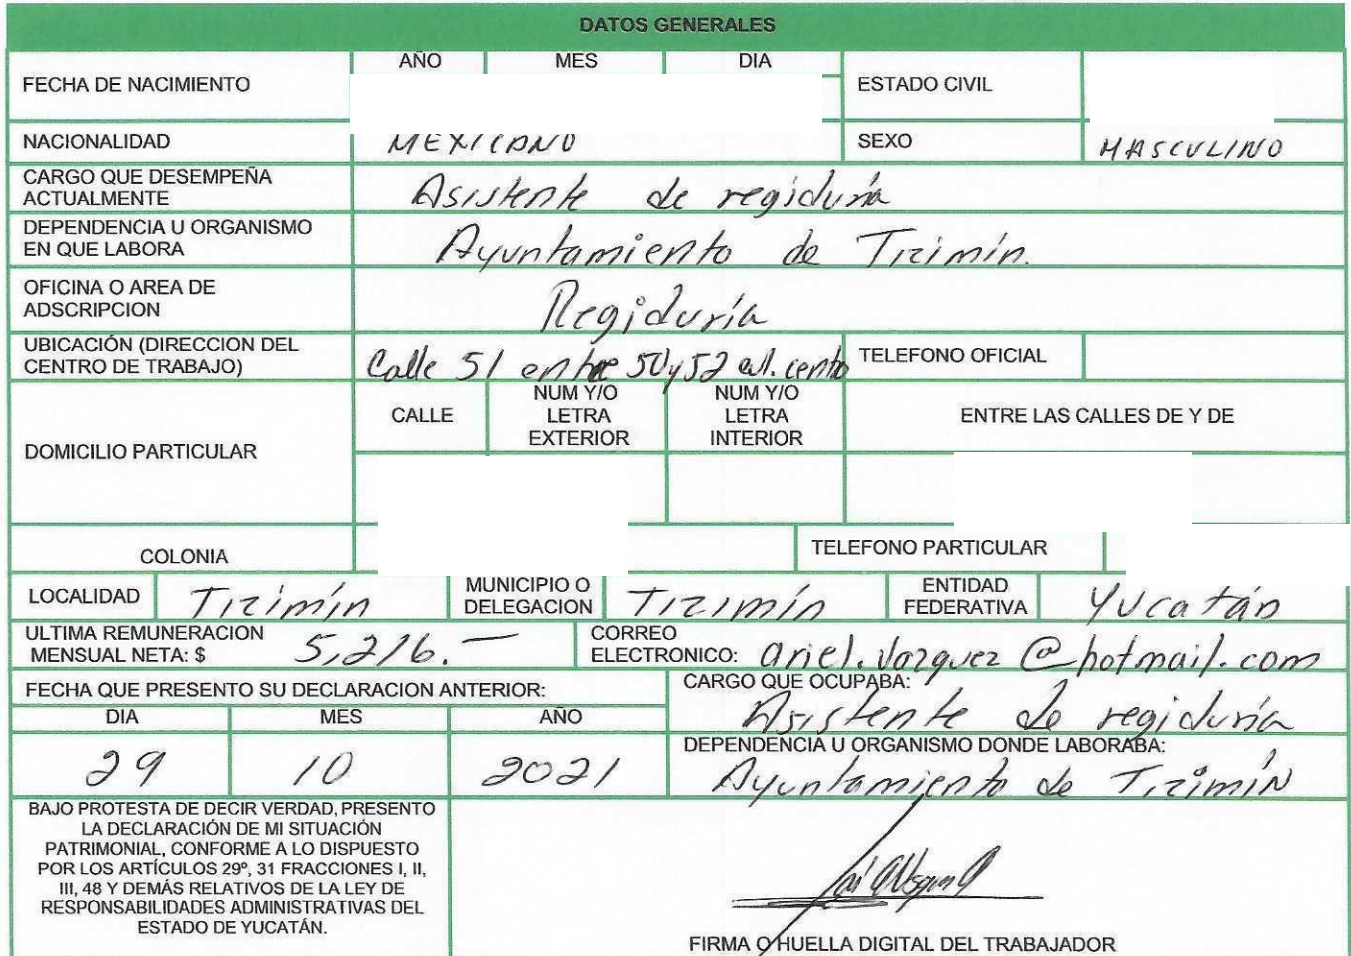 DATOS GENERALES
AÑO MES DIA
FECHA DE NACIMIENTO ESTADO CIVIL
NACIONALIDAD MEXICANO SEXO MASCULINO
CARGO QUE DESEMPEÑA
ACTUALMENTE Asistente de regiduría
DEPENDENCIA U ORGANISMO
EN QUE LABORA Ayuntamiento de Tizimín.
OFICINA O AREA DE
ADSCRIPCION Regiduría
UBICACIÓN (DIRECCION DEL
CENTRO DE TRABAJO) Calle 51 entre 50 y 52 col. cento TELEFONO OFICIAL
DOMICILIO PARTICULAR
CALLE
NUM Y/O
LETRA
EXTERIOR
NUM Y/O
LETRA
INTERIOR
ENTRE LAS CALLES DE Y DE
COLONIA TELEFONO PARTICULAR
LOCALIDAD Tizimín
MUNICIPIO O
DELEGACION Tizimín
ENTIDAD
FEDERATIVA Yucatán
ULTIMA REMUNERACION
MENSUAL NETA: $ 5,216.—
CORREO
ELECTRONICO: ariel.vazquez@hotmail.com
FECHA QUE PRESENTO SU DECLARACION ANTERIOR:
DIA MES AÑO
29 10 2021
CARGO QUE OCUPABA:
Asistente de regiduría
DEPENDENCIA U ORGANISMO DONDE LABORABA:
Ayuntamiento de Tizimín
BAJO PROTESTA DE DECIR VERDAD, PRESENTO
LA DECLARACIÓN DE MI SITUACIÓN
PATRIMONIAL, CONFORME A LO DISPUESTO
POR LOS ARTÍCULOS 29º, 31 FRACCIONES I, II,
III, 48 Y DEMÁS RELATIVOS DE LA LEY DE
RESPONSABILIDADES ADMINISTRATIVAS DEL
ESTADO DE YUCATÁN.
FIRMA O HUELLA DIGITAL DEL TRABAJADOR